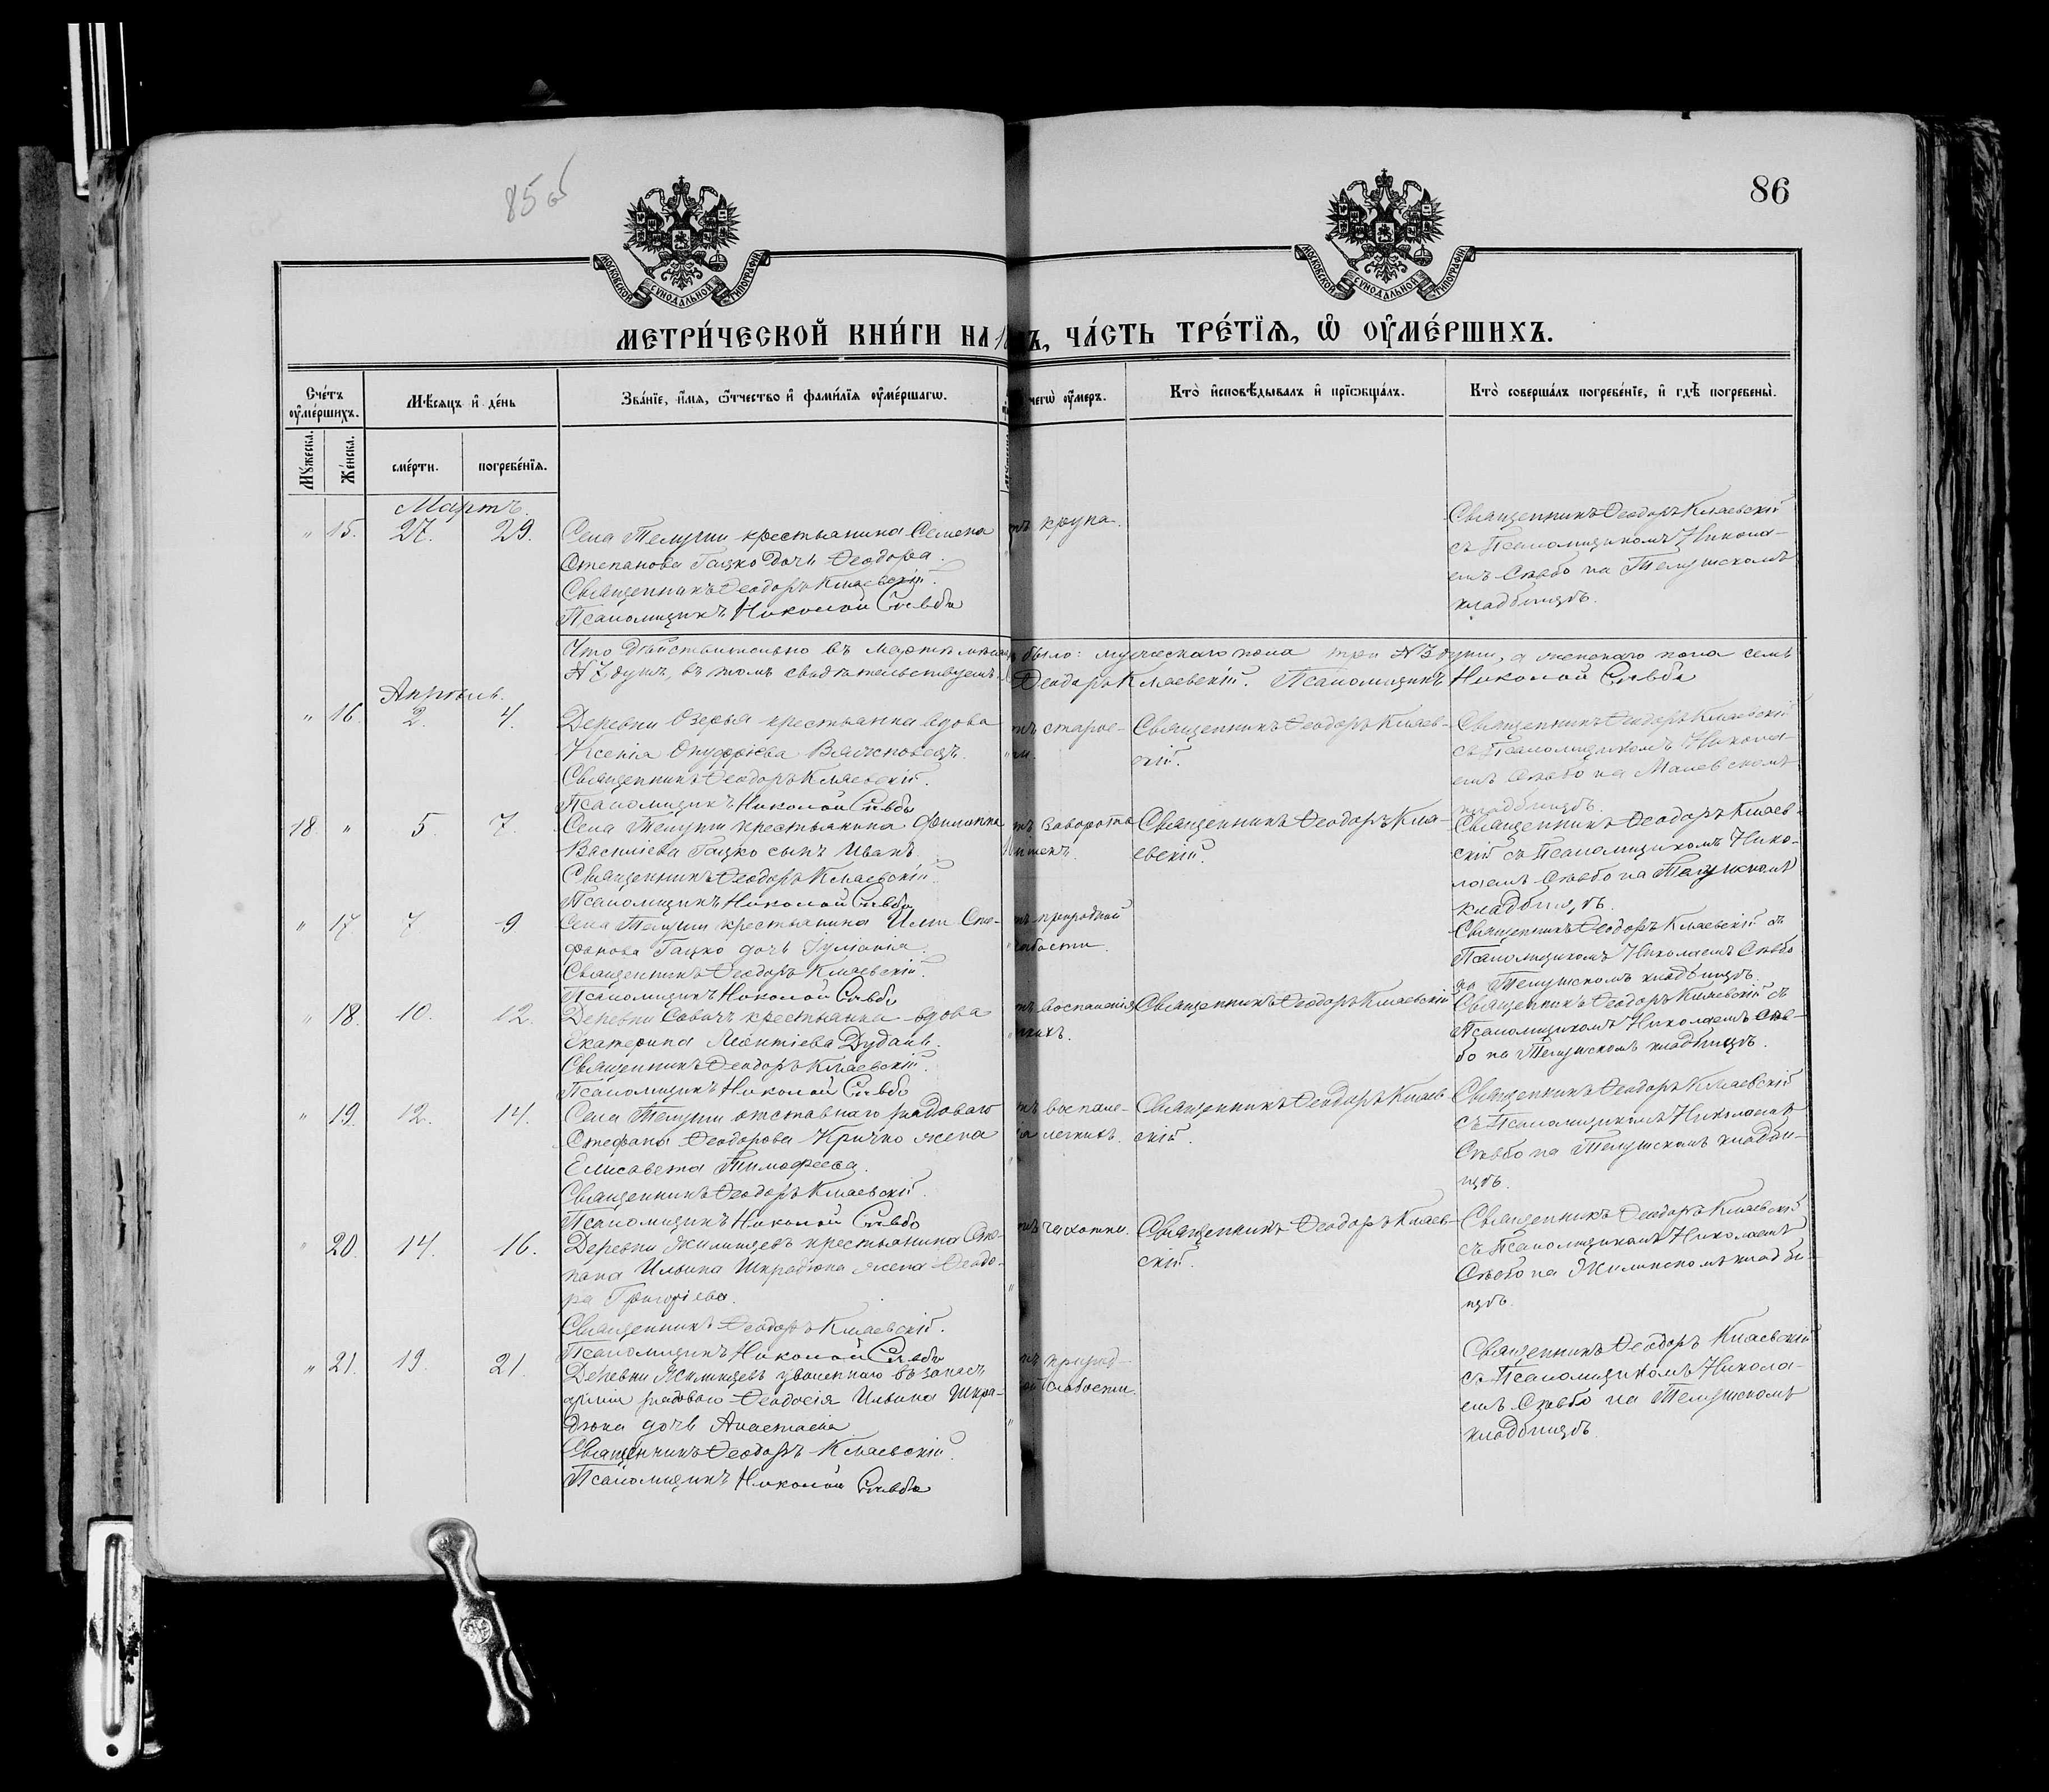 85об
86
МОСКОВСКОЙ СѴНОДАЛЬНОЙ ТИПОГРАФІИ
МОСКОВСКОЙ СѴНОДАЛЬНОЙ ТИПОГРАФІИ
МЕТРИ́ЧЕСКОЙ КНИ́ГИ НА 1 Ъ, ЧА́СТЬ ТРЕ́ТЇѦ, Ѡ҆ ОУ҆МЕ́РШИХЪ.
Сче́тъ оу҆ме́ршихъ.
Мѣсѧцъ и҆ де́нь
Зва́нїе, и҆́мѧ, ѻ҆́тчество и҆ фами́лїѧ оу҆ме́ршагѡ.
чегѡ̀ оу҆́меръ.
Кто̀ и҆сповѣ́дывалъ и҆ прїѡбща́лъ.
Кто̀ соверша́лъ погребе́нїе, и҆ гдѣ̀ погребены̀.
Мꙋ́жеска.
Же́нска.
сме́рти.
погребе́нїѧ.
Мартъ.
" 15. 27. 29.
Села Телуши крестьянина Семена
Степанова Гацко дочь Ѳеодора.
Священникъ Ѳеодоръ Клаевскій.
Псаломщикъ Николай Сѣвбо
тъ крупа.
Священникъ Ѳеодоръ Клаевскій
съ Псаломщикомъ Никола-
емъ Сѣвбо на Телушскомъ
кладбищѣ.
Что дѣйствительно въ мартѣ мѣся было: мужескаго пола три №3 души, а женскаго пола семь
№7 душъ, въ томъ свидѣтельствуемъ. Ѳеодоръ Клаевскій. Псаломщикъ Николай Сѣвбо
Апрѣль.
" 16. 2. 4.
Деревни Озерья крестьянка вдова
Ксенія Онуфріева
Священникъ Ѳеодоръ Клаевскій.
Псаломщикъ Николай Сѣвбо
тъ старос-
ти.
Священникъ Ѳеодоръ Клаев-
скій.
Священникъ Ѳеодоръ Клаевскій
съ Псаломщикомъ Никола-
емъ Сѣвбо на Малевскомъ
кладбищѣ.
18 " 5. 7.
Села Телуши крестьянина Филиппа
Василіева Гацко сынъ Иванъ.
Священникъ Ѳеодоръ Клаевскій.
Псаломщикъ Николай Сѣвбо
тъ заворота
кишекъ.
Священникъ Ѳеодоръ Кла-
евскій.
Священникъ Ѳеодоръ Клаев-
скій съ Псаломщикомъ Нико-
лаемъ Сѣвбо на Телушскомъ
кладбищѣ.
" 17 7 9
Села Телуши крестьянина Иліи Сте-
фанова Гацко дочь Іуліанія.
Священникъ Ѳеодоръ Клаевскій.
Псаломщикъ Николай Сѣвбо
тъ природной
слабости.
Священникъ Ѳеодоръ Клаевскій съ
Псаломщикомъ Николаемъ Сѣвбо
на Телушскомъ кладбищѣ.
" 18. 10. 12.
Деревни Савичъ крестьянка вдова
Екатерина Леонтіева Дудань.
Священникъ Ѳеодоръ Клаевскій.
Псаломщикъ Николай Сѣвбо
тъ воспаленія
гкихъ.
Священникъ Ѳеодоръ Клаевскій
Священникъ Ѳеодоръ Клаевскій съ
Псаломщикомъ Николаемъ Сѣв-
бо на Телушскомъ кладбищѣ.
" 19. 12. 14.
Села Телуши отставнаго рядоваго
Стефана Ѳеодорова Кричко жена
Елисавета Тимофеева.
Священникъ Ѳеодоръ Клаевскій.
Псаломщикъ Николай Сѣвбо
тъ воспале-
ія легкихъ.
Священникъ Ѳеодоръ Клаев-
скій.
Священникъ Ѳеодоръ Клаевскій
съ Псаломщикомъ Николаемъ
Сѣвбо на Телушскомъ кладби-
щѣ.
" 20. 14. 16.
Деревни Жилинцевъ крестьянина Сте-
пана Ильина Шкрадюка жена Ѳеодо-
ра Григоріева.
Священникъ Ѳеодоръ Клаевскій.
Псаломщикъ Николай Сѣвбо
тъ чахотки.
Священникъ Ѳеодоръ Клаев-
скій.
Священникъ Ѳеодоръ Клаевскій
съ Псаломщикомъ Николаемъ
Сѣвбо на Жилинскомъ кладби-
щѣ.
" 21. 19. 21.
Деревни Жилинцевъ уволеннаго въ запасъ
арміи рядоваго Ѳеодосія Ильина Шкра-
дюка дочь Анастасія
Священникъ Ѳеодоръ Клаевскій.
Псаломщикъ Николай Сѣвбо
тъ природ-
ой слабости.
Священникъ Ѳеодоръ Клаевскій
съ Псаломщикомъ Никола-
емъ Сѣвбо на Телушскомъ
кладбищѣ.